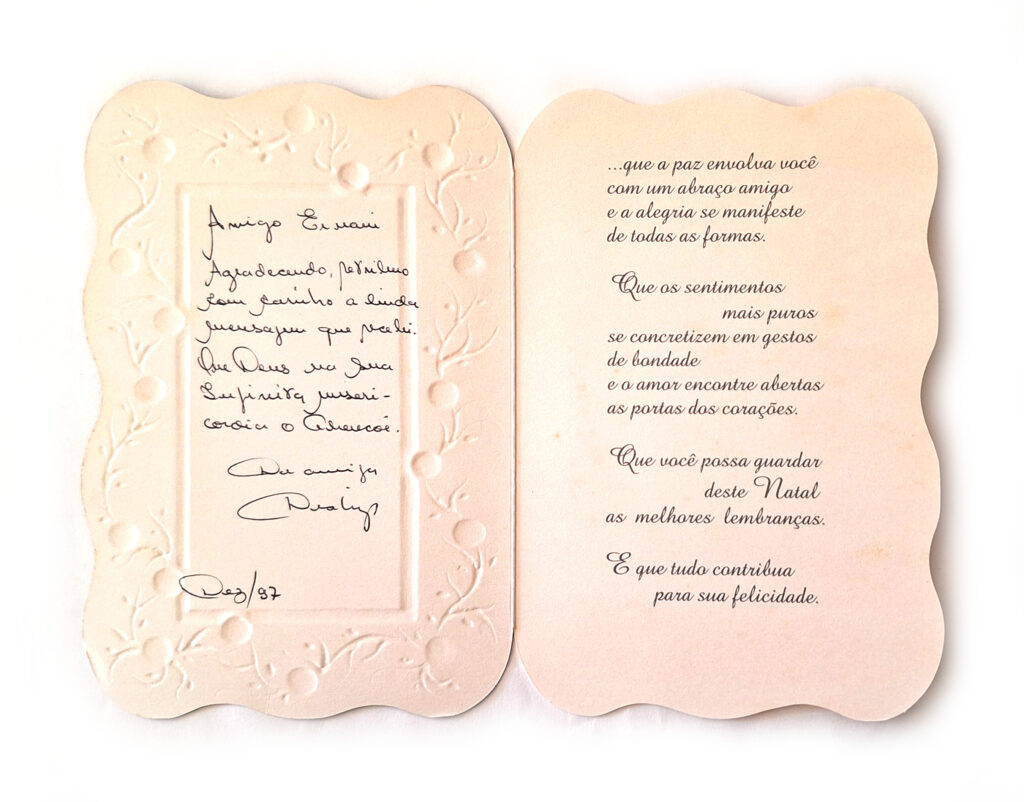 Amigo Ernani
Agradecendo, retribuo
com carinho a linda
mensagem que recebi.
Que Deus na sua
Infinita miseri-
cordia o Abençoe.
Da amiga
Dez/97
...que a paz envolva você
com um abraço amigo
e a alegria se manifeste
de todas as formas.
Que os sentimentos
mais puros
se concretizem em gestos
de bondade
e o amor encontre abertas
as portas dos corações.
Que você possa guardar
deste Natal
as melhores lembranças.
E que tudo contribua
para sua felicidade.